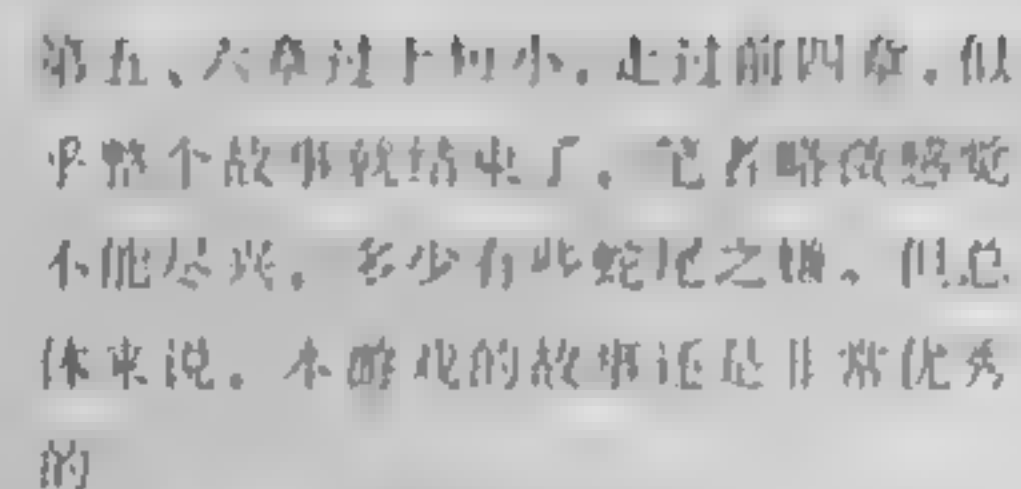 第五、六章过于短小,走过前四章,似
乎整个故事就结束了。笔者略微感觉
不能尽兴。多少有些蛇尾之嫌。但总
体来说。本酷戏的故事还是非常优秀
的